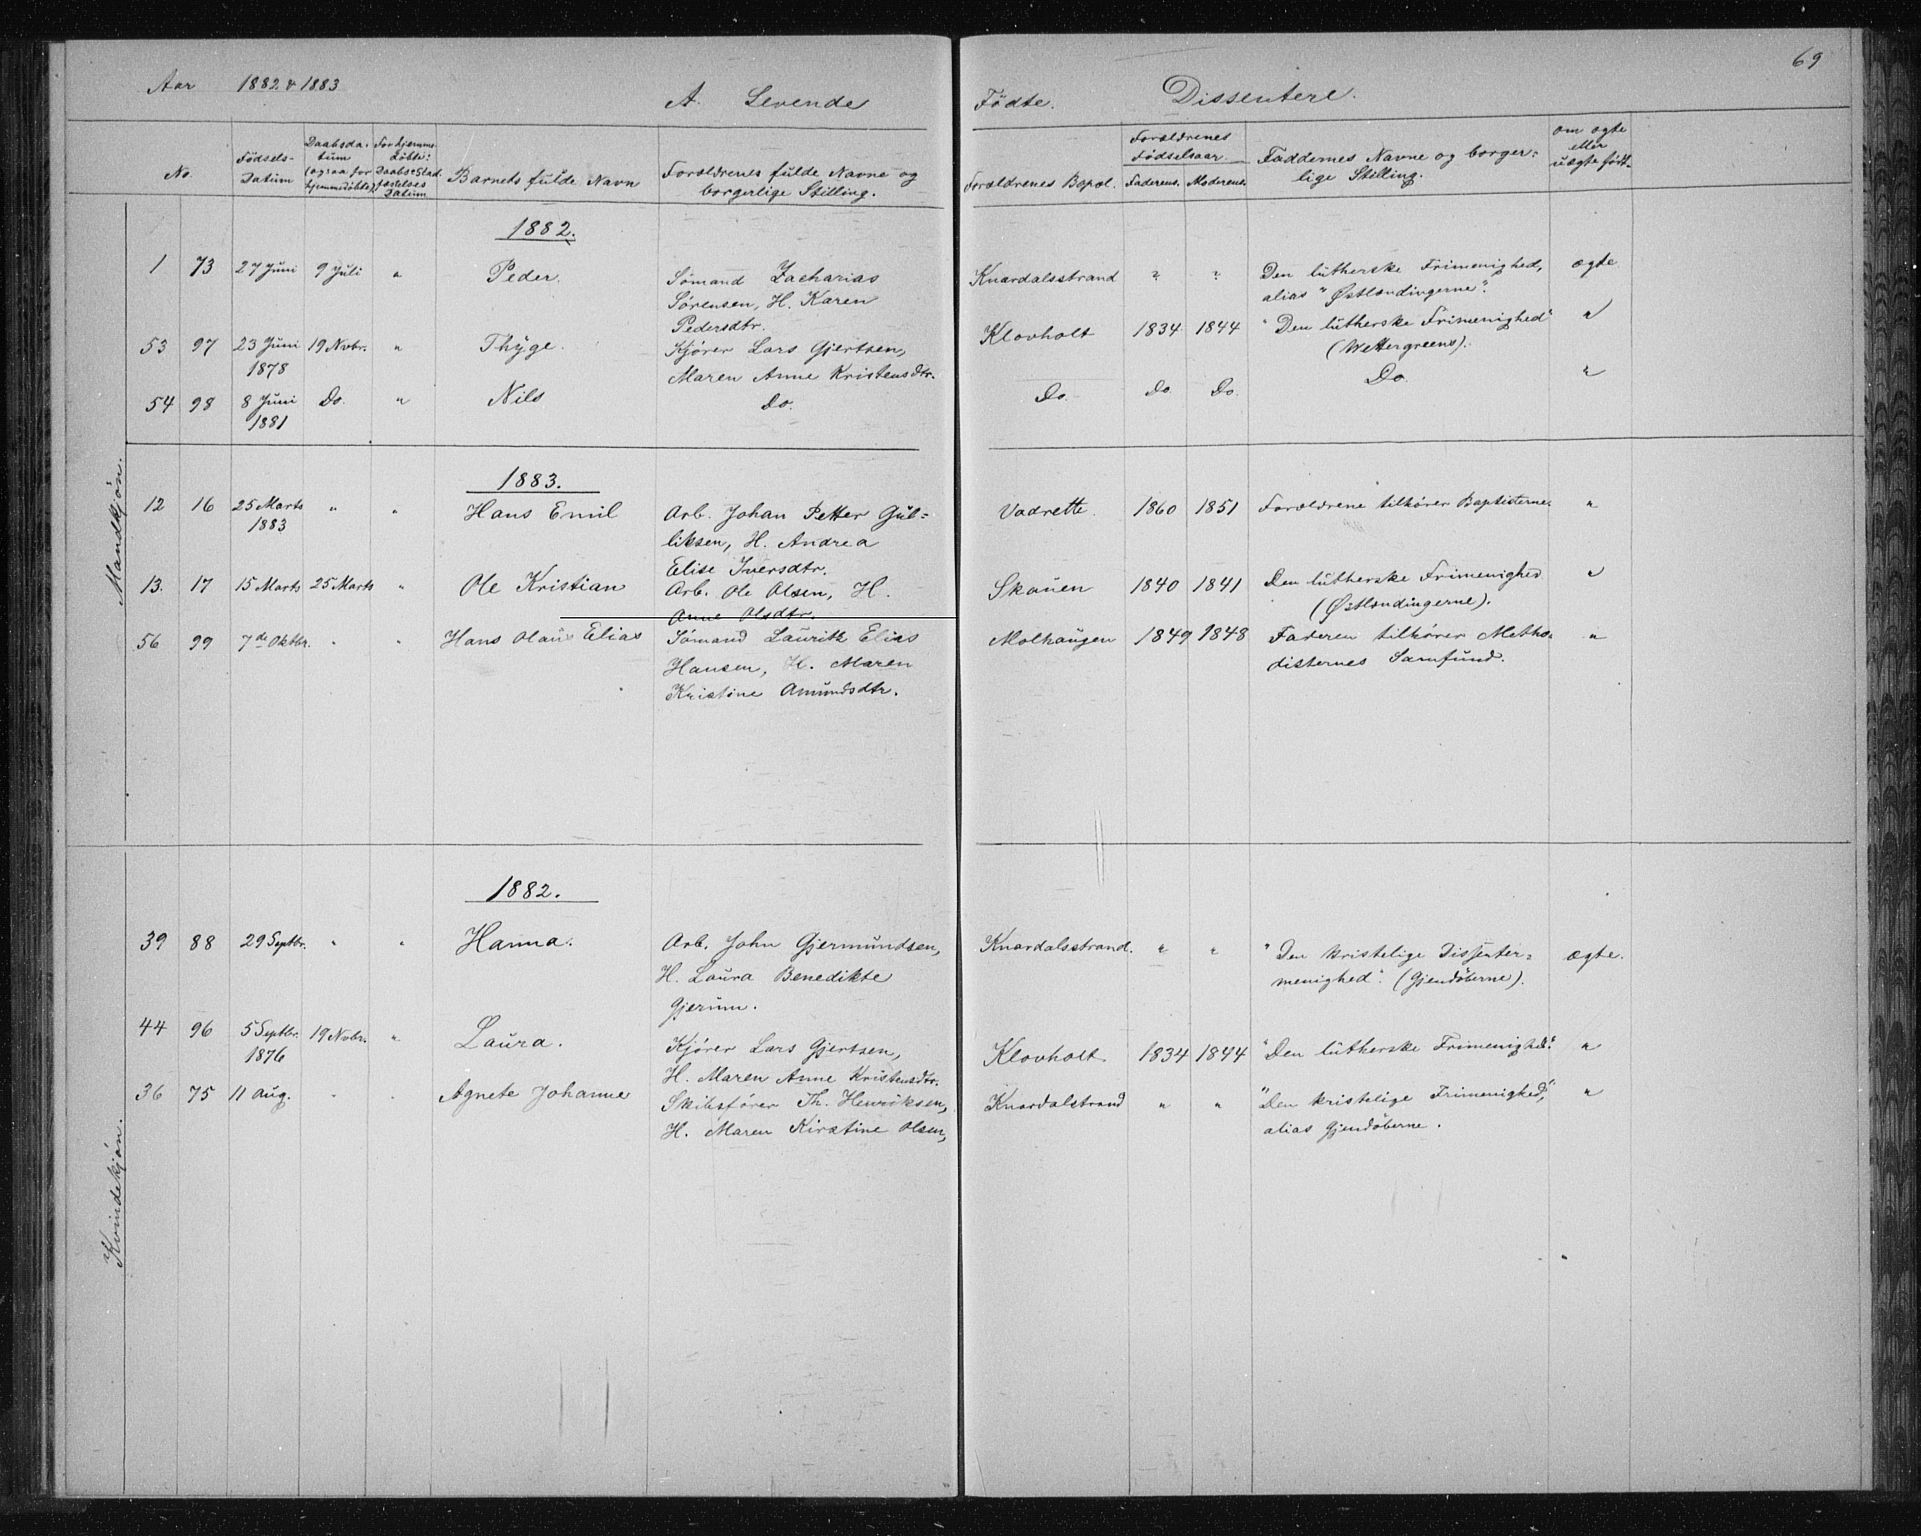 69
Aar 1882 & 1883 A. Levende Fødte. Dissentere.
No. Fødsels-Datum Daabsdatum (ogsaa for hjemmedøbte) For hjemmedøbte: Daabs Stadfæstelses Datum Barnets fulde Navn Forældrenes fulde Navne og borgerlige Stilling. Forældrenes Bopæl. Forældrenes Fødselsaar Faderens. Moderens. Faddernes Navne og borgerlige Stilling. om ægte eller uægte født.
Mandkjøn.
1882.
1 73 27 Juni 9 Juli " Peder. Sømand Zacharias Knardalsstrand ? ? Den lutherske Frimenighed, ægte.
Sørensen, H. Karen alias "Østlændingerne".
Pedersdtr.
53 97 23 Juni 19 Nvbr. " Thyge. Kjører Lars Gjertsen, Klovholt 1834 1844 "Den lutherske Frimenighed" "
1878 Maren Anne Kristensdtr. (Wettergreens).
54 98 8 Juni Do. " Nils Do. Do. Do. Do. Do. "
1881
1883.
12 16 25 Marts " " Hans Emil Arb. Johan Petter Gul= Vadrette. 1860 1851 Forældrene tilhører Baptisterne. "
1883 liksen, H. Andrea
Elise Iversdtr.
13. 17 15 Marts 25 Marts " Ole Kristian Arb. Ole Olsen, H. Skauen 1840 1841 Den lutherske Frimenighed "
Anne Olsdtr. (Østlændingerne).
56 99 7de Oktbr. " " Hans Olaus Elias Sømand Lauritz Elias Molhaugen 1849 1848 Faderen tilhører Metho- "
Hansen, H. Maren disternes Samfund.
Kristine Amundsdtr.
Kvindekjøn.
1882.
39 88 29 Septbr. " " Hanna. Arb. John Gjermundsen, Knardalsstrand. " " "Den kristelige Dissenter= ægte.
H. Laura Benedikte menighed". (Gjendøberne).
Gjerum.
44 96 5 Septbr. 19 Nvbr. " Laura. Kjører Lars Gjertsen, Klovholt 1834 1844 "Den lutherske Frimenighed". "
1876 H. Maren Anne Kristensdtr.
36 75 11 Aug. " " Agnete Johanne Skibsfører Th. Henriksen, Knardalstrand " " "Den kristelige Frimenighed", "
H. Maren Kirstine Olsen, alias Gjendøberne.